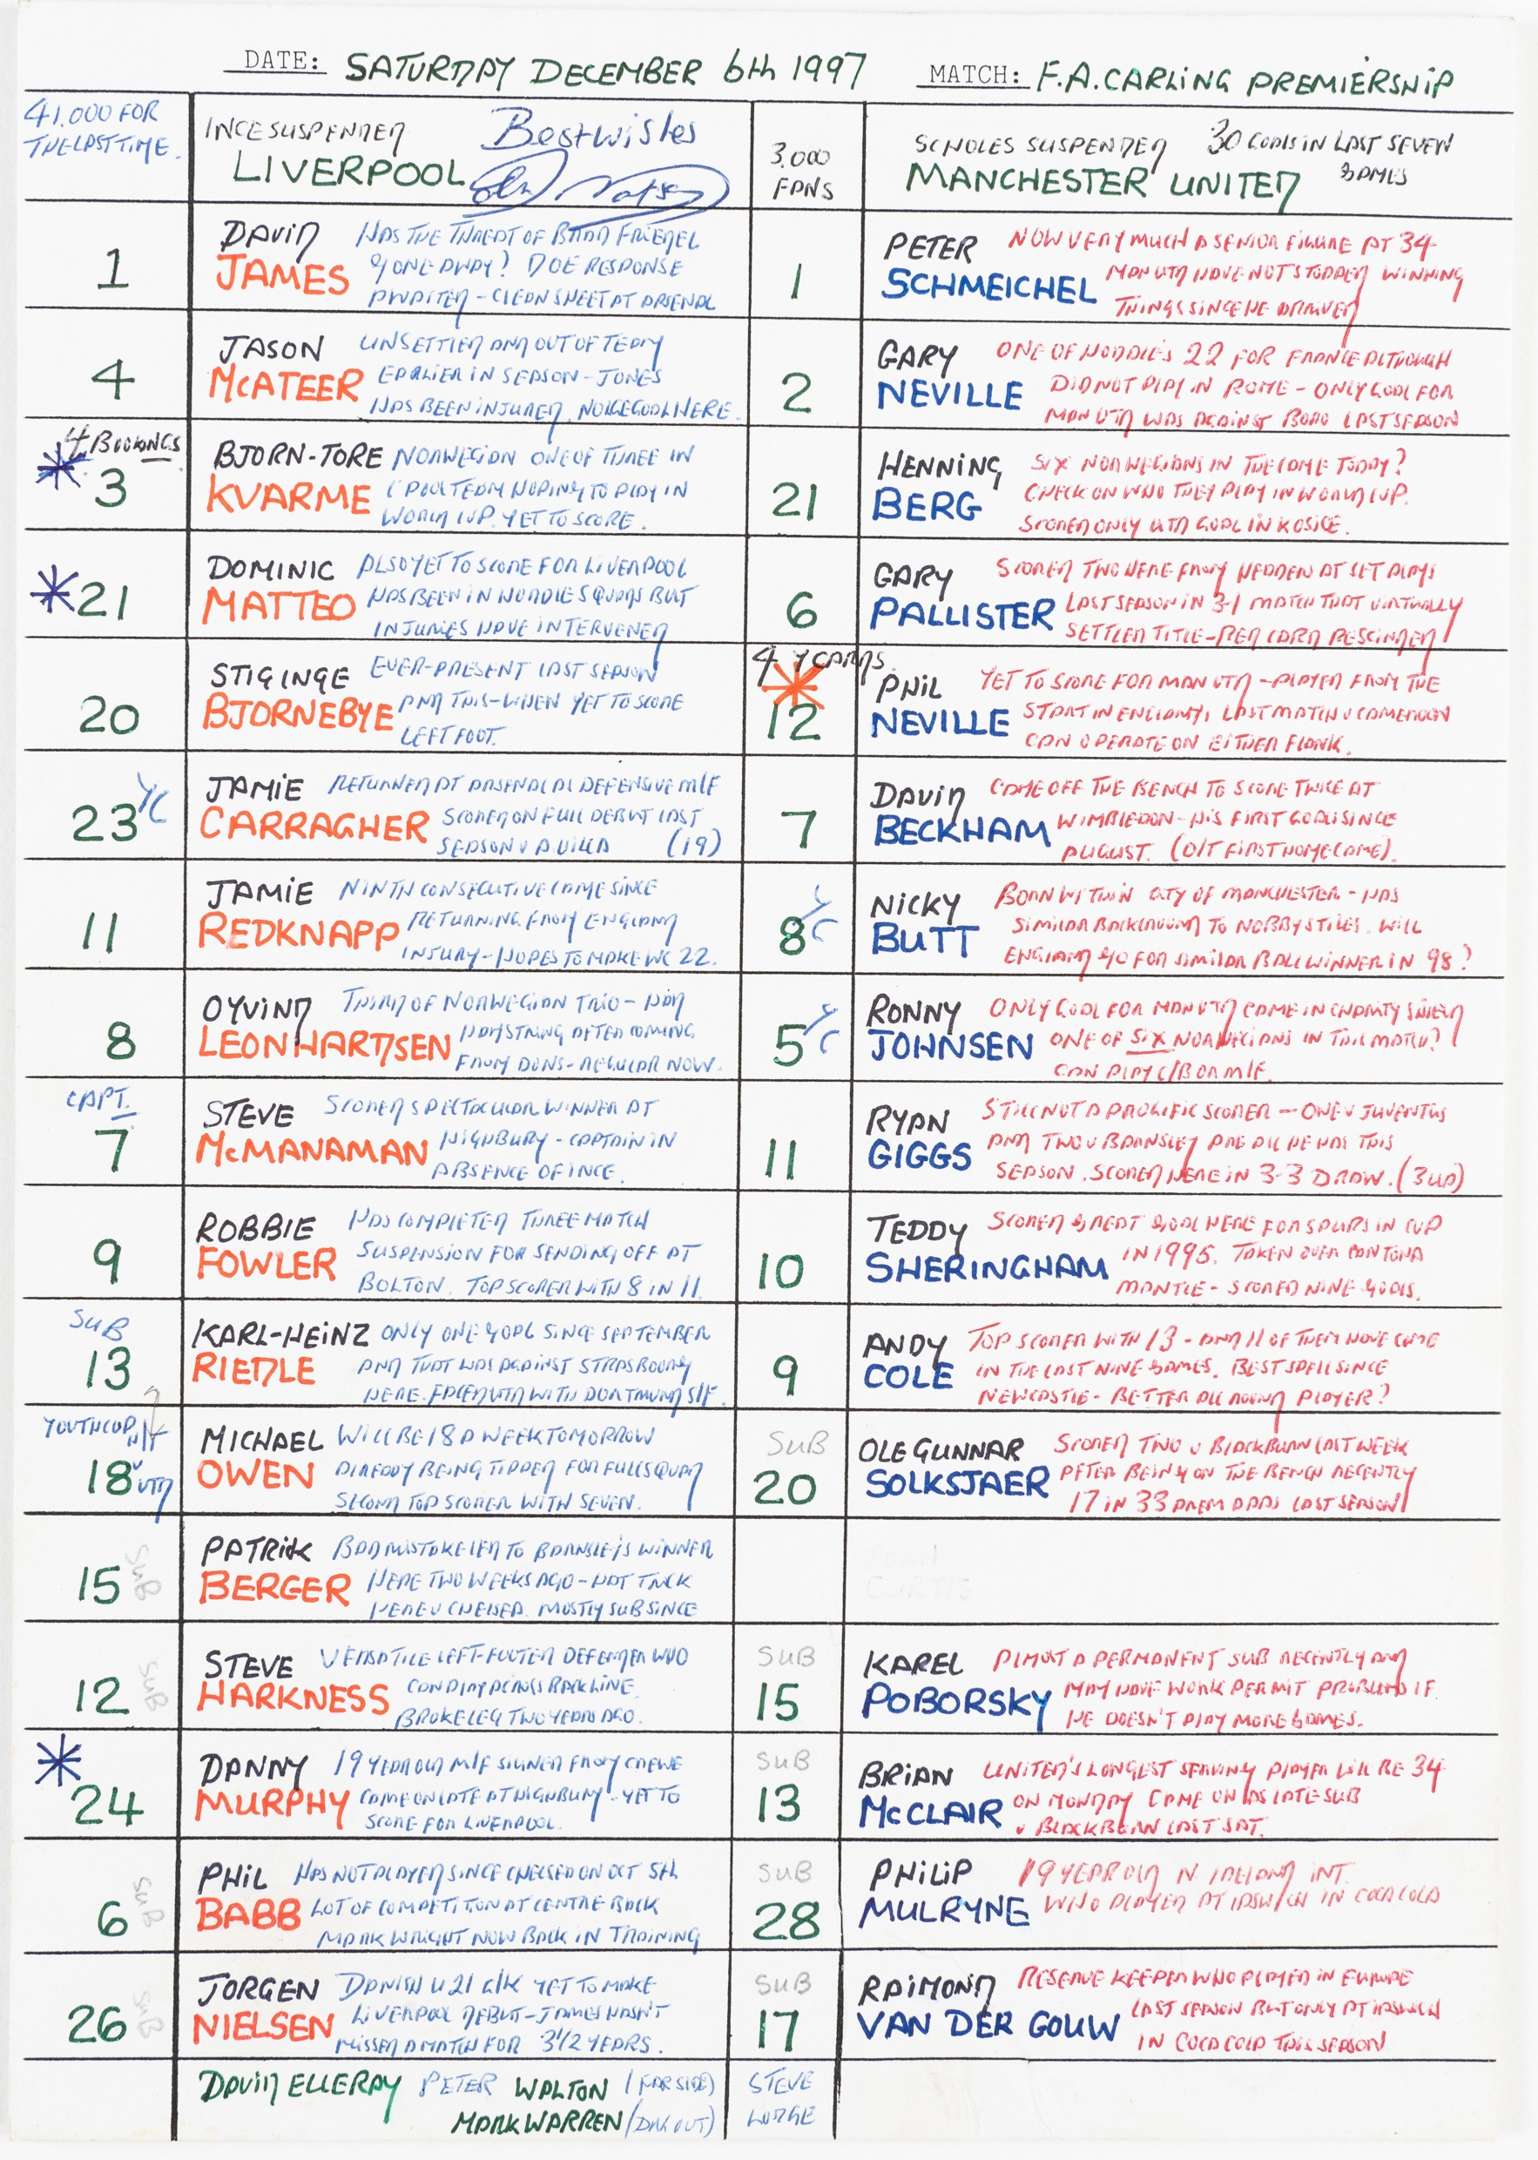 DATE: SATURDAY DECEMBER 6th 1997 MATCH: F.A. CARLING PREMIERSHIP
41,000 FOR
THE LAST TIME.
INCE SUSPENDED Best wishes
LIVERPOOL
3,000
FANS
SCHOLES SUSPENDED 30 GOALS IN LAST SEVEN
GAMES
MANCHESTER UNITED
1
DAVID HAS THE THREAT OF BRAD FRIEDEL
JAMES GONE AWAY? DOE RESPONSE
AWAITED - CLEAN SHEET AT ARSENAL
1
PETER NOW VERY MUCH A SENIOR FIGURE AT 34
SCHMEICHEL MAN UTD HAVE NOT STOPPED WINNING
THINGS SINCE HE ARRIVED
4
JASON UNSETTLED AND OUT OF TEAM
McATEER EARLIER IN SEASON - JONES
HAS BEEN INJURED. NO LGE GOAL HERE.
2
GARY ONE OF HODDLE'S 22 FOR FRANCE ALTHOUGH
NEVILLE DID NOT PLAY IN ROME - ONLY GOAL FOR
MAN UTD WAS AGAINST BORO LAST SEASON
4 BOOKINGS
3
BJORN-TORE NORWEGIAN ONE OF THREE IN
KVARME L'POOL TEAM HOPING TO PLAY IN
WORLD CUP. YET TO SCORE.
21
HENNING SIX NORWEGIANS IN THE GAME TODAY?
BERG CHECK ON WHO THEY PLAY IN WORLD CUP.
SCORED ONLY UTD GOAL IN KOSICE.
21
DOMINIC ALSO YET TO SCORE FOR LIVERPOOL
MATTEO HAS BEEN IN HODDLE SQUADS BUT
INJURIES HAVE INTERVENED
6
GARY SCORED TWO HERE FROM HEADERS AT SET PLAYS
PALLISTER LAST SEASON IN 3-1 MATCH THAT VIRTUALLY
SETTLED TITLE - RED CARD RESCINDED
20
STIG INGE EVER-PRESENT LAST SEASON
BJORNEBYE AND THIS - WHEN YET TO SCORE
LEFT FOOT.
4 Y CARDS
12
PHIL YET TO SCORE FOR MAN UTD - PLAYED FROM THE
NEVILLE START IN ENGLAND'S LAST MATCH v CAMEROON
CAN OPERATE ON EITHER FLANK.
23 YC
JAMIE RETURNED AT ARSENAL AS DEFENSIVE M/F
CARRAGHER SCORED ON FULL DEBUT LAST
SEASON v A VILLA (19)
7
DAVID CAME OFF THE BENCH TO SCORE TWICE AT
BECKHAM WIMBLEDON - HIS FIRST GOALS SINCE
AUGUST. (O/T FIRST HOME GAME).
11
JAMIE NINTH CONSECUTIVE GAME SINCE
REDKNAPP RETURNING FROM ENGLAND
INJURY - HOPES TO MAKE WC 22.
8 YC
NICKY BORN WITHIN CITY OF MANCHESTER - HAS
BUTT SIMILAR BACKGROUND TO NOBBY STILES. WILL
ENGLAND GO FOR SIMILAR BALL WINNER IN 98?
8
OYVIND THIRD OF NORWEGIAN TRIO - HAD
LEONHARDSEN HAMSTRING AFTER COMING
FROM DONS - REGULAR NOW.
5 YC
RONNY ONLY GOAL FOR MAN UTD CAME IN CHARITY SHIELD
JOHNSEN ONE OF SIX NORWEGIANS IN THIS MATCH?
CAN PLAY C/B OR M/F.
CAPT.
7
STEVE SCORED SPECTACULAR WINNER AT
McMANAMAN HIGHBURY - CAPTAIN IN
ABSENCE OF INCE.
11
RYAN STILL NOT A PROLIFIC SCORER - ONE v JUVENTUS
GIGGS AND TWO v BARNSLEY ARE ALL HE HAS THIS
SEASON. SCORED HERE IN 3-3 DRAW. (3 UP)
9
ROBBIE HAS COMPLETED THREE MATCH
FOWLER SUSPENSION FOR SENDING OFF AT
BOLTON. TOP SCORER WITH 8 IN 11.
10
TEDDY SCORED GREAT GOAL HERE FOR SPURS IN CUP
SHERINGHAM IN 1995. TAKEN OVER CANTONA
MANTLE - SCORED NINE GOALS.
SUB
13
KARL-HEINZ ONLY ONE GOAL SINCE SEPTEMBER
RIEDLE AND THAT WAS AGAINST STRASBOURG
HERE. FACED UTD WITH DORTMUND S/F.
9
ANDY TOP SCORER WITH 13 - AND 11 OF THEM HAVE COME
COLE IN THE LAST NINE GAMES. BEST SPELL SINCE
NEWCASTLE - BETTER ALL ROUND PLAYER?
YOUTH CUP
18 v UTD
MICHAEL WILL BE 18 A WEEK TOMORROW
OWEN ALREADY BEING TIPPED FOR FULL SQUAD
SECOND TOP SCORER WITH SEVEN.
SUB
20
OLE GUNNAR SCORED TWO v BLACKBURN LAST WEEK
SOLKSJAER AFTER BEING ON THE BENCH RECENTLY
17 IN 33 PREM APPS LAST SEASON
15 SUB
PATRIK BAD MISTAKE LED TO BARNSLEY'S WINNER
BERGER HERE TWO WEEKS AGO - HAT TRICK
HERE v CHELSEA. MOSTLY SUB SINCE
CURTIS
12 SUB
STEVE VERSATILE LEFT-FOOTED DEFENDER WHO
HARKNESS CAN PLAY ACROSS BACK LINE.
BROKE LEG TWO YEARS AGO.
SUB
15
KAREL ALMOST A PERMANENT SUB RECENTLY AND
POBORSKY MAY HAVE WORK PERMIT PROBLEMS IF
HE DOESN'T PLAY MORE GAMES.
24
DANNY 19 YEAR OLD M/F SIGNED FROM CREWE
MURPHY CAME ON LATE AT HIGHBURY - YET TO
SCORE FOR LIVERPOOL.
SUB
13
BRIAN UNITED'S LONGEST SERVING PLAYER WILL BE 34
McCLAIR ON MONDAY CAME ON AS LATE SUB
v BLACKBURN LAST SAT.
6 SUB
PHIL HAS NOT PLAYED SINCE CHELSEA ON OCT 5th
BABB LOT OF COMPETITION AT CENTRE BACK
MARK WRIGHT NOW BACK IN TRAINING
SUB
28
PHILIP 19 YEAR OLD N. IRELAND INT.
MULRYNE WHO PLAYED AT IPSWICH IN COCA COLA
26 SUB
JORGEN DANISH U21 G/K YET TO MAKE
NIELSEN LIVERPOOL DEBUT - JAMES HASN'T
MISSED A MATCH FOR 3 1/2 YEARS.
SUB
17
RAIMOND RESERVE KEEPER WHO PLAYED IN EUROPE
VAN DER GOUW LAST SEASON BUT ONLY AT IPSWICH
IN COCA COLA THIS SEASON
DAVID ELLERAY PETER WALTON (FAR SIDE)
MARK WARREN (DUG OUT)
STEVE
LODGE